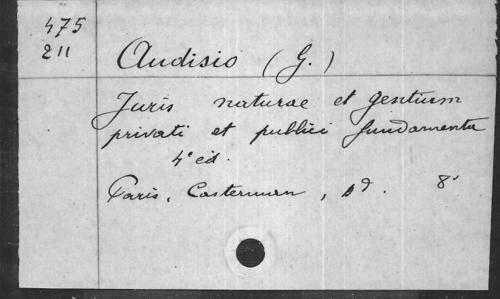 475
211
Audisio (G.)
Juris naturae et gentium
privati et publici fundamenta
4e éd.
Paris, Casterman, sd. 8°